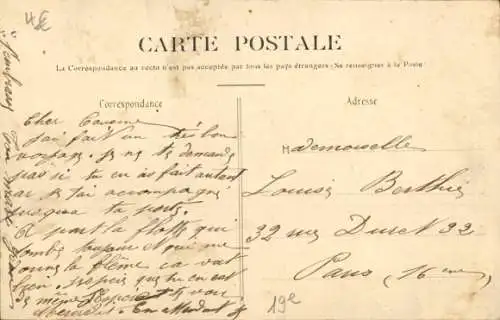 4€
CARTE POSTALE
La Correspondance au recto n'est pas acceptée par tous les pays étrangers (Se renseigner à la Poste)
Correspondance
Adresse
Cher
j'ai fait un très bon
voyage. Je ne te demande
pas si tu en as fait autant
car je t'ai accompagné
jusqu'à ta porte.
A part la flotte qui
tombe et qui me
donne la flême ca va
bien. J'espère que tu en est
de même
En attendant
Mademoiselle
Louise Berthié
32 rue Duret 32
Paris (16eme)
19e